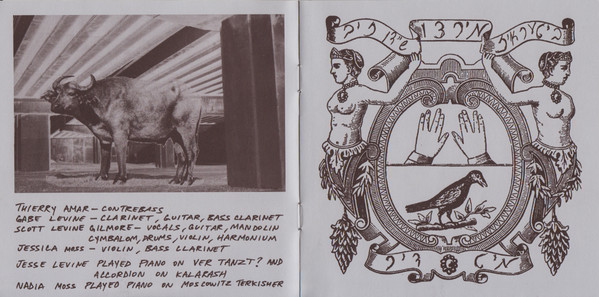 THIERRY AMAR – CONTREBASS
GABE LEVINE – CLARINET, GUITAR, BASS CLARINET
SCOTT LEVINE GILMORE – VOCALS, GUITAR, MANDOLIN
CYMBALOM, DRUMS, VIOLIN, HARMONIUM
JESSICA MOSS – VIOLIN, BASS CLARINET
JESSE LEVINE PLAYED PIANO ON VER TANZT? AND
ACCORDION ON KALARASH
NADIA MOSS PLAYED PIANO ON MOSCOWITZ TERKISHER
מיט דיר